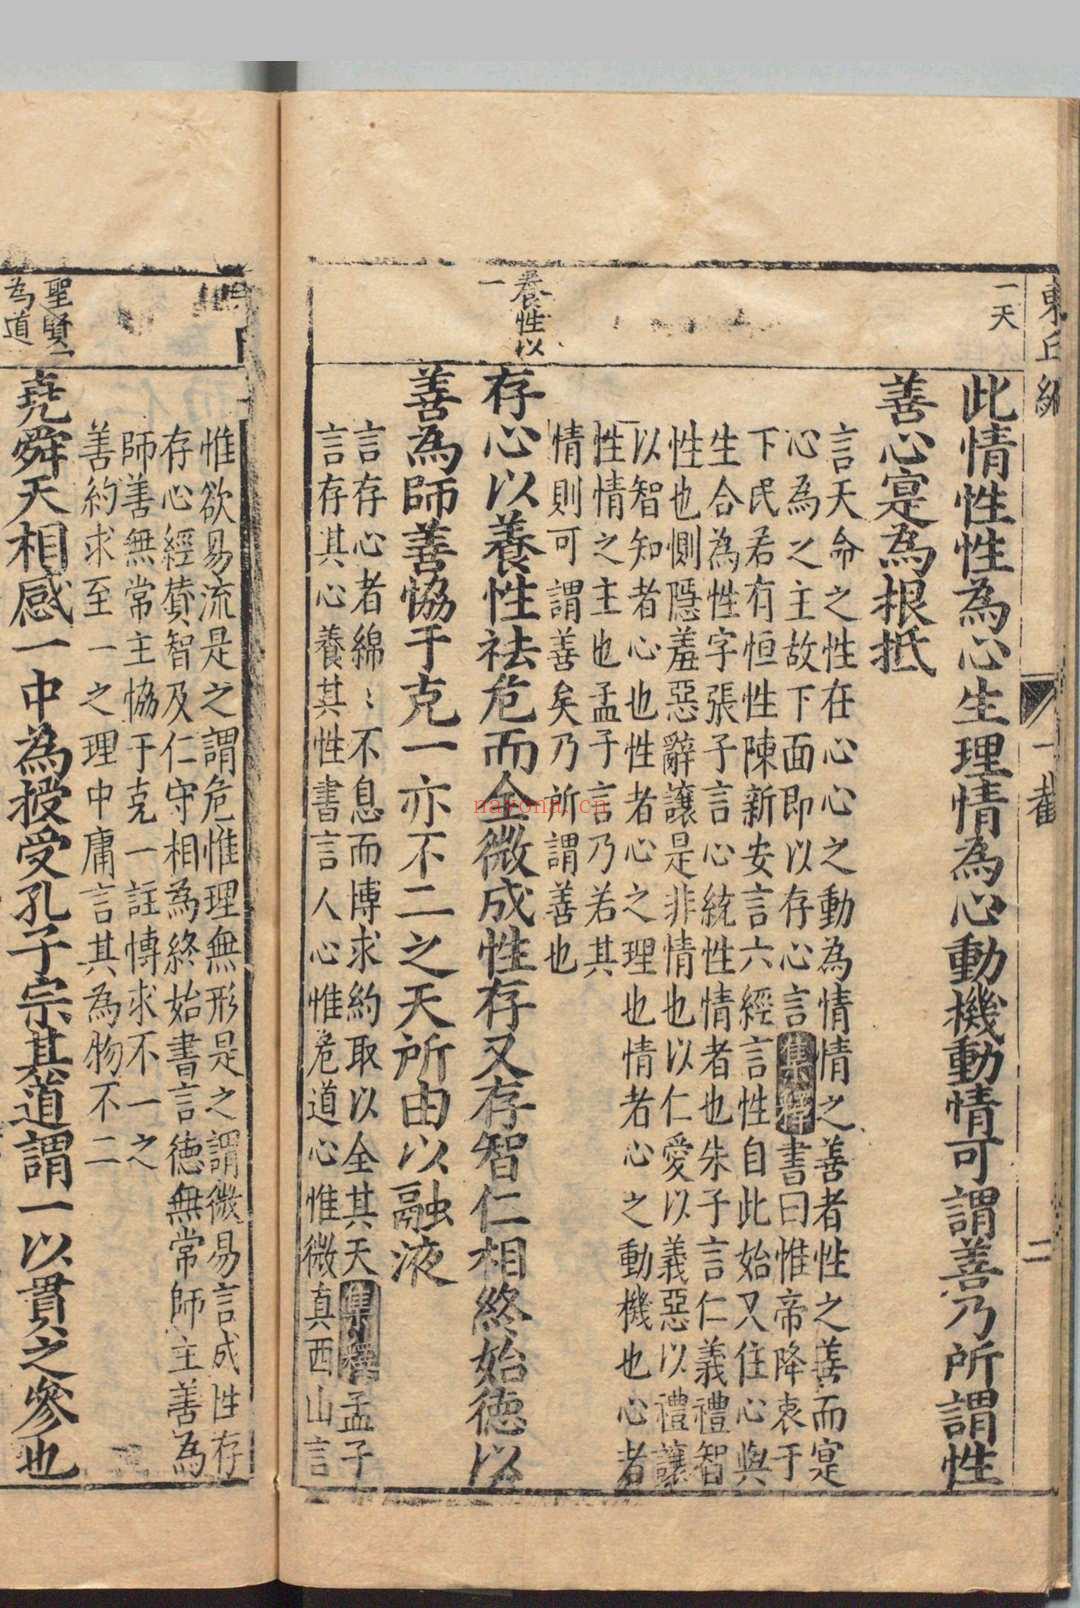 一天
此情性性為心生理情為心動機動情可謂善乃所謂性
善心寔為根抵
言天命之性在心心之動為情情之善者性之善而寔
心為之主故下面即以存心言集釋書曰惟帝降衷于
下民若有恒性陳新安言六經言性自此始又住心與
生合為性字張子言心統性情者也朱子言仁義禮智
性也惻隱羞惡辭讓是非情也以仁愛以義惡以禮讓
以智知者心也性者心之理也情者心之動機也心者
性情之主也孟子言乃若其
情則可謂善矣乃所謂善也
養性以
一
存心以養性祛危而全微成性存又存智仁相終始德以
善為師善恊于克一亦不二之天所由以融液
言存心者綿〻不息而博求約取以全其天集釋孟子
言存其心養其性書言人心惟危道心惟微真西山言
惟欲易流是之謂危惟理無形是之謂微易言成性存
存心經賛智及仁守相為終始書言德無常師主善為
師善無常主恊于克一註慱求不一之
善約求至一之理中庸言其為物不二
聖賢一
為道
堯舜天相感一中為授受孔子宗其道謂一以貫之參也
nayona.cn